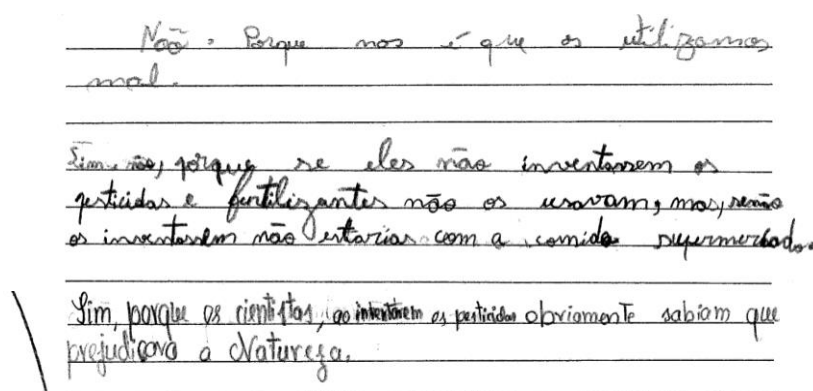 Não. Porque nos é que os utilizamos
mal.
Sim não, porque se eles não inventassem os
pesticidas e fertilizantes não os usavam, mas, senão
os inventassem não estarias com a comida supermercado.
Sim, porque os cientistas, ao inventarem os pesticidas obviamente sabiam que
prejudicava a Natureza.